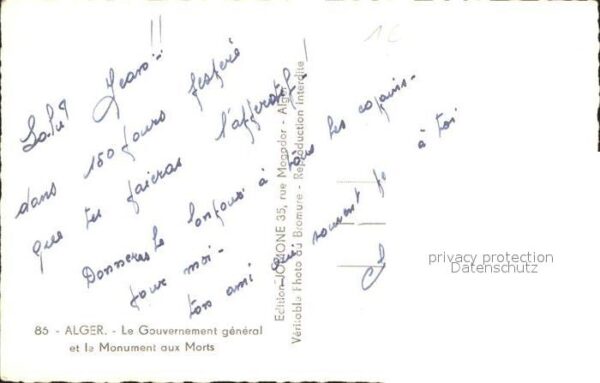 Salut Jean !!
dans 150 jours
que tu l'apéro !
Donneras le bonjour à tous les copains -
pour moi -
ton ami qui souvent à toi
1€
85 - ALGER. - Le Gouvernement général
et le Monument aux Morts
Edition JOMONE 35, rue Mogador - Alger
Véritable Photo au Bromure - Reproduction Interdite
privacy protection
Datenschutz